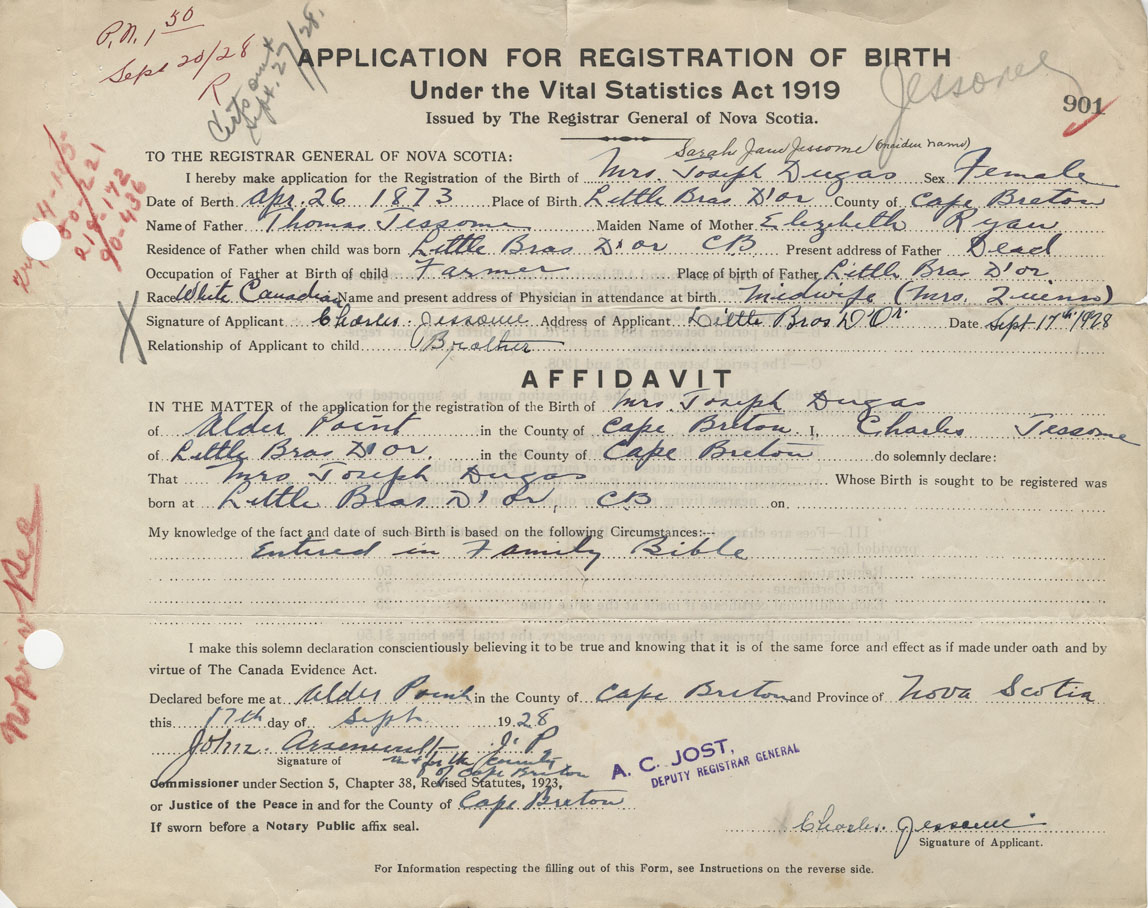 P.N. 1 50
Sept 20/28
R
Sept. 27/28.
Jessome
901
APPLICATION FOR REGISTRATION OF BIRTH
Under the Vital Statistics Act 1919
Issued by The Registrar General of Nova Scotia.
Sarah Jane Jessome (maiden name)
TO THE REGISTRAR GENERAL OF NOVA SCOTIA:
I hereby make application for the Registration of the Birth of Mrs. Joseph Dugas Sex Female
Date of Berth Apr. 26 1873 Place of Birth Little Bras D'or County of Cape Breton
Name of Father Thomas Jessome Maiden Name of Mother Elizibeth Ryan
Residence of Father when child was born Little Bras D'or CB Present address of Father Dead
Occupation of Father at Birth of child Farmer Place of birth of Father Little Bras D'or
Race White Canadian Name and present address of Physician in attendance at birth Midwife (Mrs. Quinn)
X
Signature of Applicant Charles Jessome Address of Applicant Little Bras D'Or Date Sept 17th 1928
Relationship of Applicant to child Brother
AFFIDAVIT
IN THE MATTER of the application for the registration of the Birth of Mrs. Joseph Dugas
of Alder Point in the County of Cape Breton I, Charles Jessome
of Little Bras D'or. in the County of Cape Breton do solemnly declare:
That Mrs Joseph Dugas Whose Birth is sought to be registered was
born at Little Bras D'or, CB on
My knowledge of the fact and date of such Birth is based on the following Circumstances:--
Entered in Family Bible
I make this solemn declaration conscientiously believing it to be true and knowing that it is of the same force and effect as if made under oath and by
virtue of The Canada Evidence Act.
Declared before me at Alder Point in the County of Cape Breton and Province of Nova Scotia
this 17th day of Sept. 1928
John. Arsenault J. P
Signature of in & for the County
of Cape Breton
Commissioner under Section 5, Chapter 38, Revised Statutes, 1923,
or Justice of the Peace in and for the County of Cape Breton
If sworn before a Notary Public affix seal.
A. C. JOST,
DEPUTY REGISTRAR GENERAL
Charles. Jessome
Signature of Applicant.
For Information respecting the filling out of this Form, see Instructions on the reverse side.